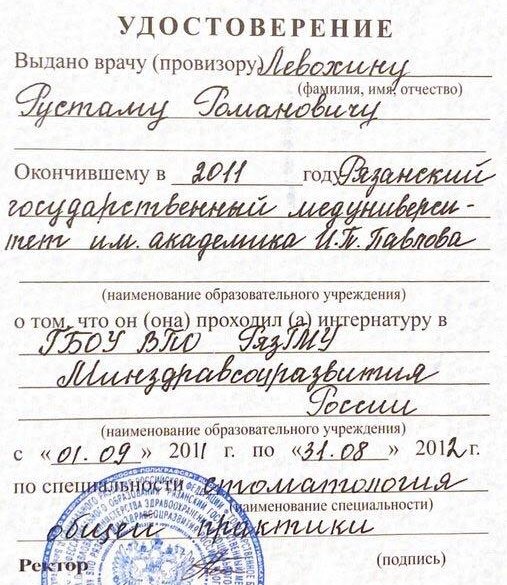 УДОСТОВЕРЕНИЕ
Выдано врачу (провизору) Левохину
(фамилия, имя, отчество)
Рустаму Романовичу
Окончившему в 2011 году Рязанский
государственный медуниверси-
тет им. академика И.П. Павлова
(наименование образовательного учреждения)
о том, что он (она) проходил (а) интернатуру в
ГБОУ ВПО РязГМУ
Минздравсоцразвития
России
(наименование образовательного учреждения)
с «01.09» 2011 г. по «31.08» 2012 г.
по специальности стоматология
(наименование специальности)
общей практики
Ректор (подпись)